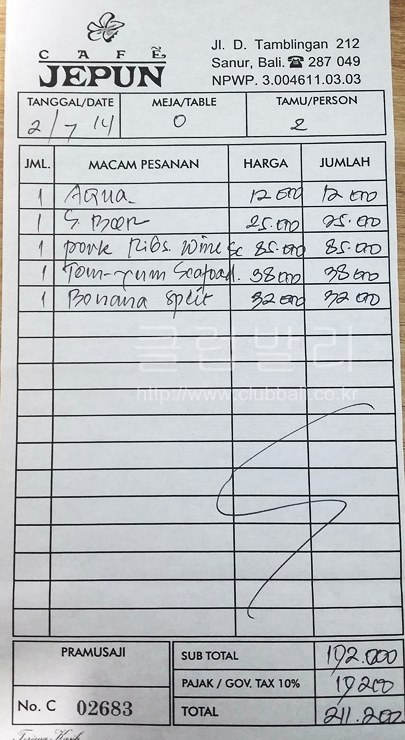 CAFÉ
JEPUN
Jl. D. Tamblingan 212
Sanur, Bali. ☎ 287 049
NPWP. 3.004611.03.03
TANGGAL/DATE MEJA/TABLE TAMU/PERSON
2/7 14 0 2
JML. MACAM PESANAN HARGA JUMLAH
1 Aqua 12 000 12 000
1 S Beer 25.000 25.000
1 pork Ribs. Wine Sc 85.000 85.000
1 Tom-yum Seafood. 38 000 38 000
1 Banana Split 32 000 32 000
클럽발리
http://www.clubbali.co.kr
PRAMUSAJI
SUB TOTAL 192.000
PAJAK / GOV. TAX 10% 19 200
No. C 02683
TOTAL 211.200
Terima Kasih